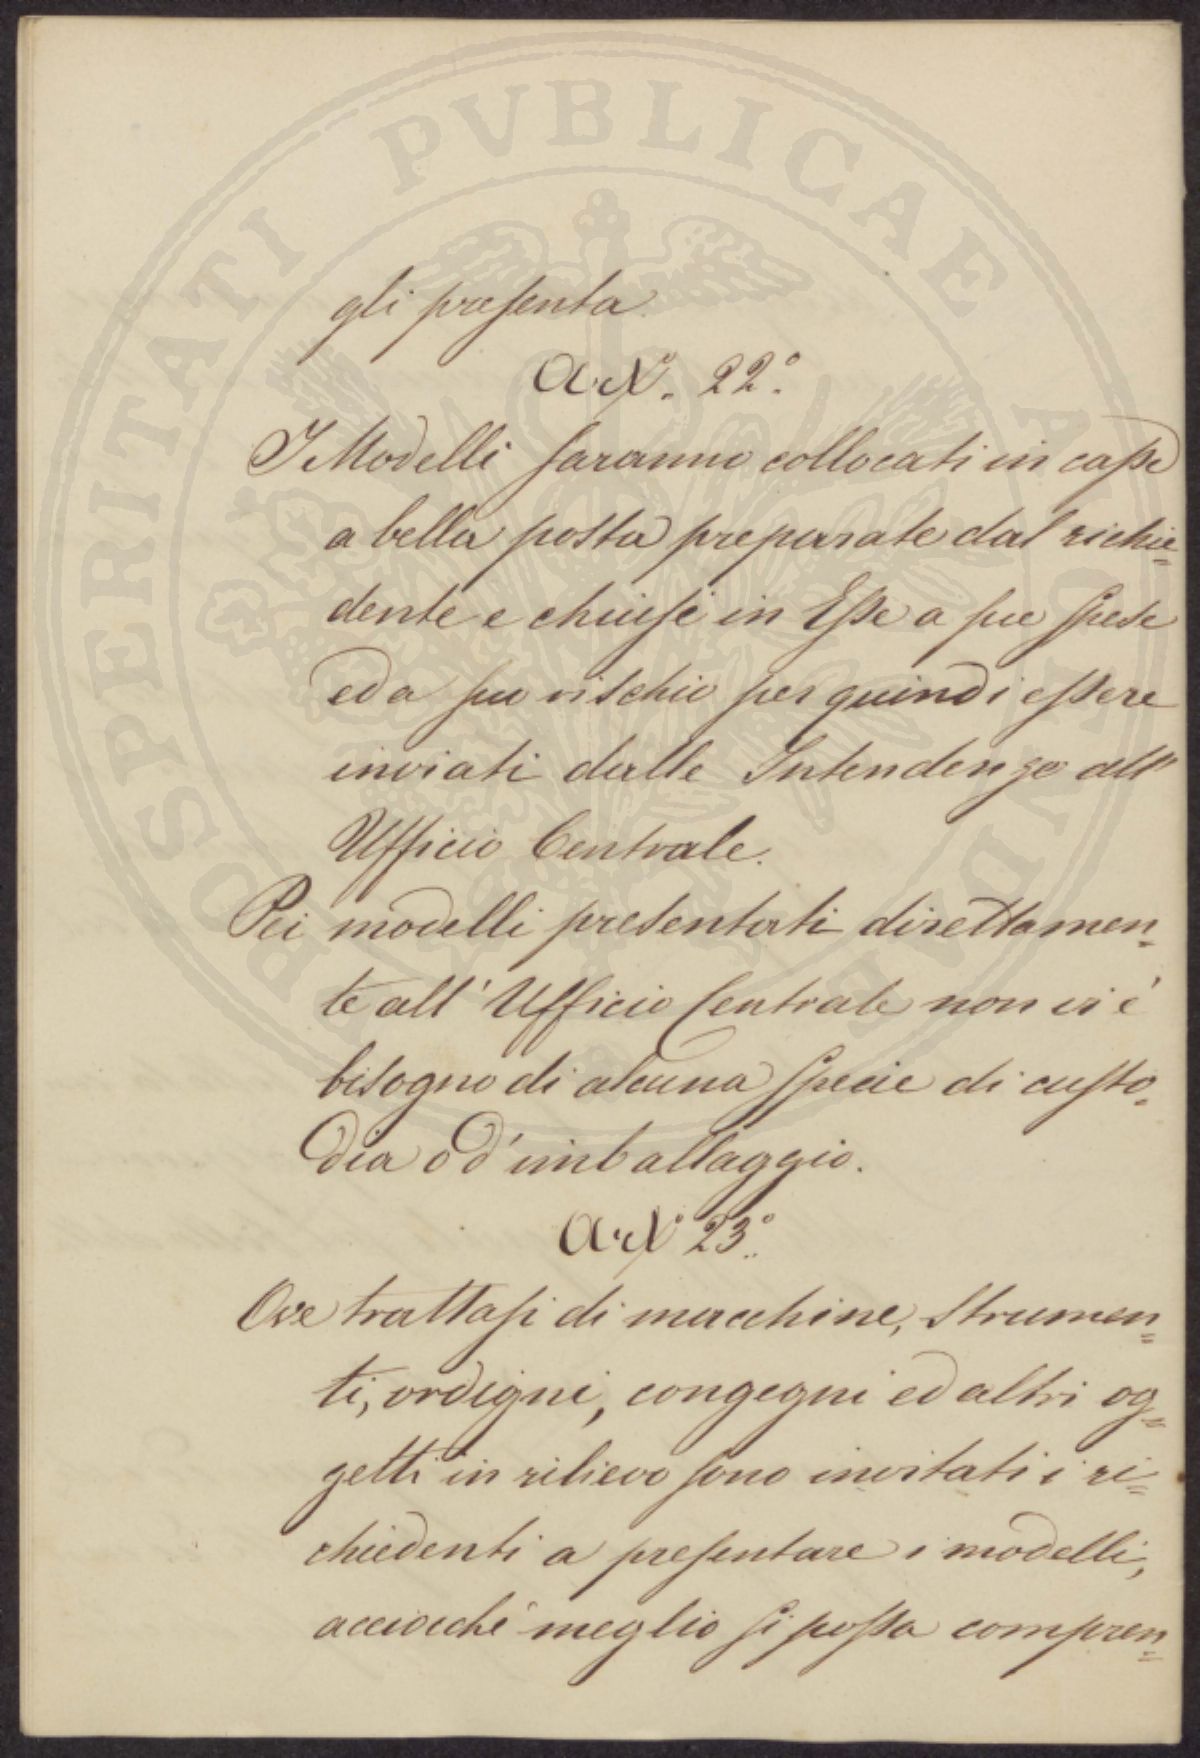 PROSPERITATI PVBLICAE AVGENDAE
gli presenta.
Art. 22°.
I Modelli saranno collocati in casse
a bella posta preparate dal richie=
dente e chiusi in Esse a sue spese
ed a suo rischio per quindi essere
inviati dalle Intendenze all'
Ufficio Centrale.
Pei modelli presentati direttamen=
te all' Ufficio Centrale non vi è
bisogno di alcuna specie di custo=
dia o d'imballaggio.
Art. 23°.
Ove trattasi di macchine, strumen=
ti, ordigni, congegni ed altri og=
getti in rilievo sono invitati i ri=
chiedenti a presentare i modelli,
acciocchè meglio si possa compren=